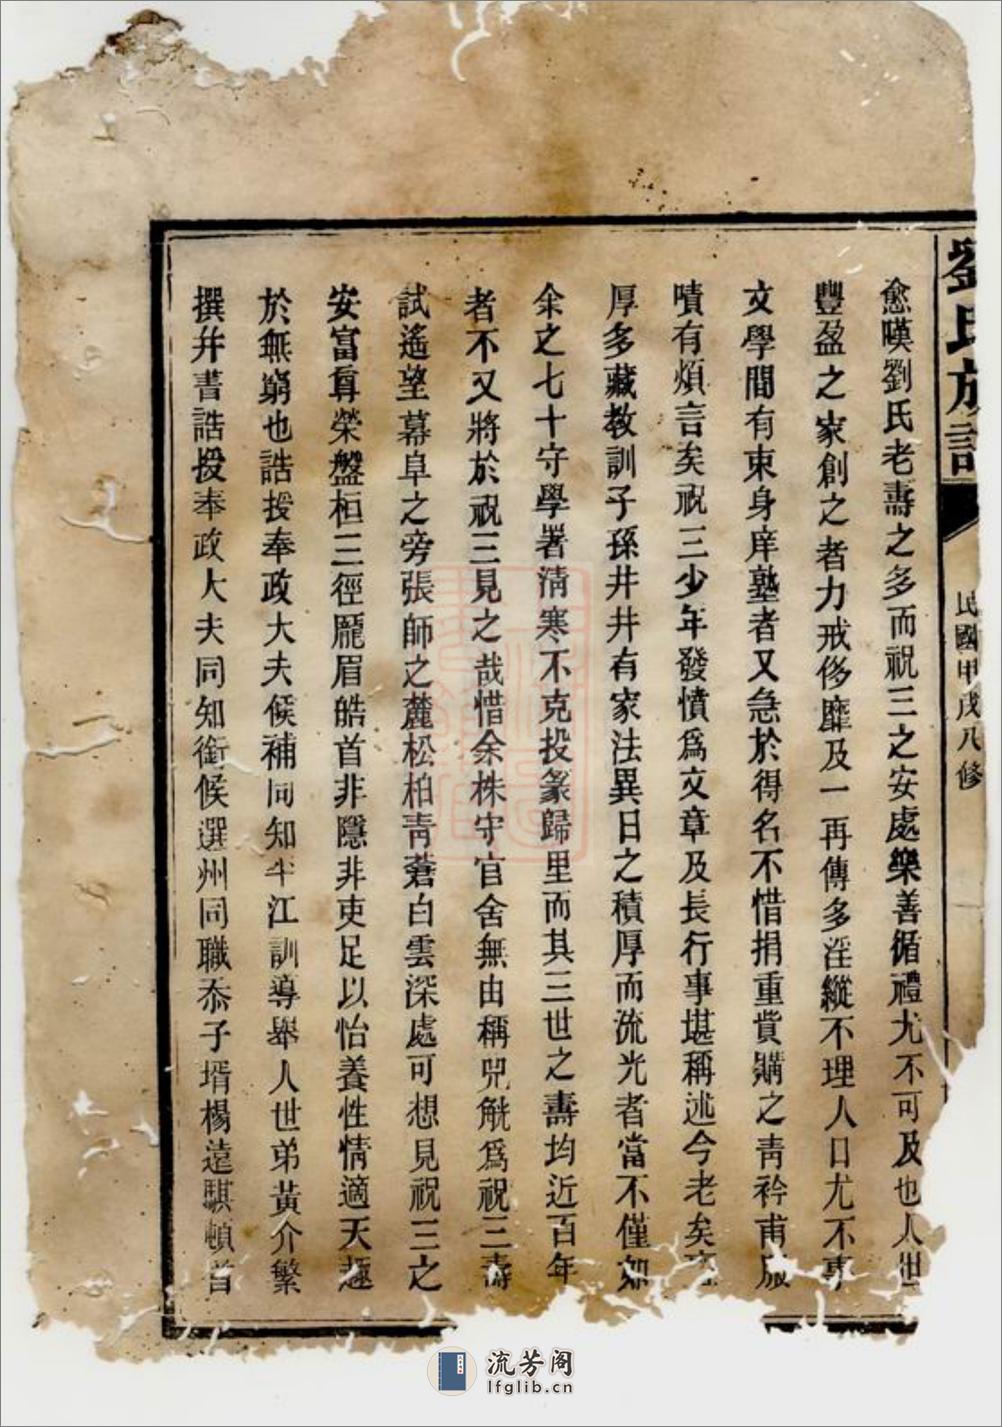 劉氏族譜
民國甲戌八修
愈嘆劉氏老壽之多而祝三之安處樂善循禮尤不可及也人世
豐盈之家創之者力戒侈靡及一再傳多淫縱不理人口尤不事
文學間有束身庠塾者又急於得名不惜捐重貲購之靑衿甫服
嘖有煩言矣祝三少年發憤爲文章及長行事堪稱述今老矣
厚多藏教訓子孫井井有家法異日之積厚而流光者當不僅如
余之七十守學署淸寒不克投篆歸里而其三世之壽均近百年
者不又將於祝三見之哉惜余株守官舍無由稱兕觥爲祝三壽
試遙望幕阜之旁張師之麓松柏靑蒼白雲深處可想見祝三之
安富尊榮盤桓三徑龎眉皓首非隱非吏足以怡養性情適天趣
於無窮也誥授奉政大夫候補同知半江訓導舉人世弟黃介繁
撰幷書誥授奉政大夫同知銜候選州同職忝子壻楊遠騏頓首
流芳阁
lfglib.cn